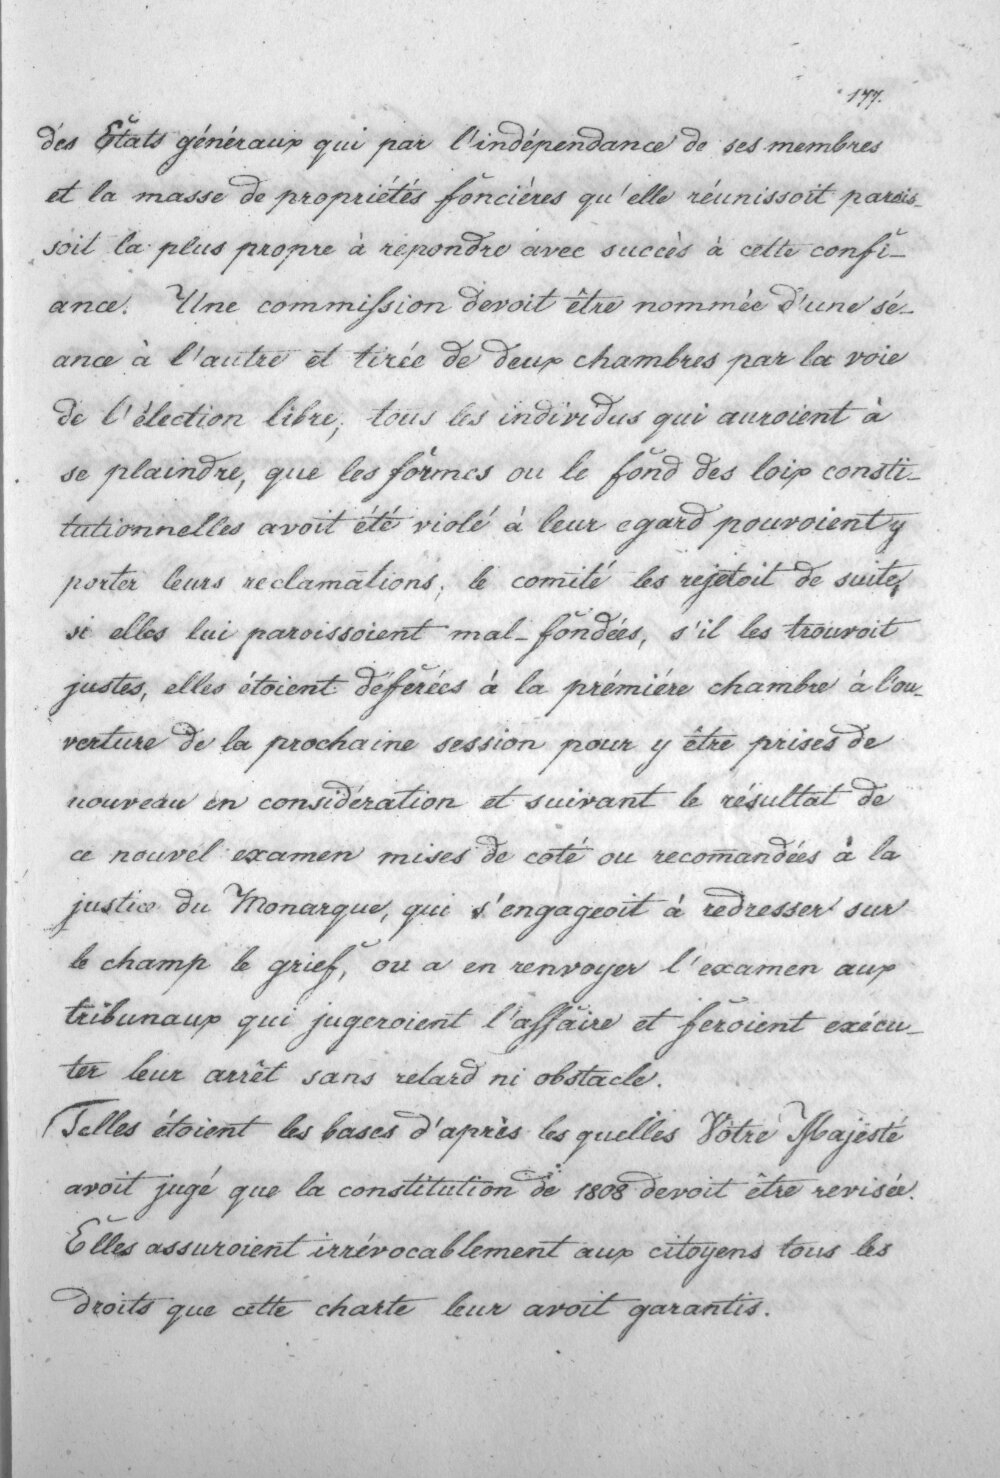 177.
dés États généraux qui par l'indépendance de ses membres
et la masse de propriétés fonciéres qu'elle réunissoit parois-
soit la plus propre à répondre avec succès à cette confi-
ance. Une commission devoit être nommée d'une sé-
ance à l'autre et tirée de deux chambres par la voie
de l'élection libre; tous les individus qui auroient à
se plaindre, que les formes ou le fond des loix consti-
tutionnelles avoit été violé à leur egard pouvoient y
porter leurs reclamations; le comité les rejetoit de suite,
si elles lui paroissoient mal-fondées, s'il les trouvoit
justes, elles étoient déferées à la prémiére chambre à l'ou-
verture de la prochaine session pour y être prises de
nouveau en considération et suivant le résultat de
ce nouvel examen mises de coté ou recomandées à la
justice du Monarque, qui s'engageoit à redresser sur
le champ le grief, ou a en renvoyer l'examen aux
tribunaux qui jugeroient l'affaire et feroient exécu-
ter leur arrêt sans retard ni obstacle.
Telles étoient les bases d'après les quelles Votre Majesté
avoit jugé que la constitution de 1808 devoit être revisée.
Elles assuroient irrévocablement aux citoyens tous les
droits que cette charte leur avoit garantis.